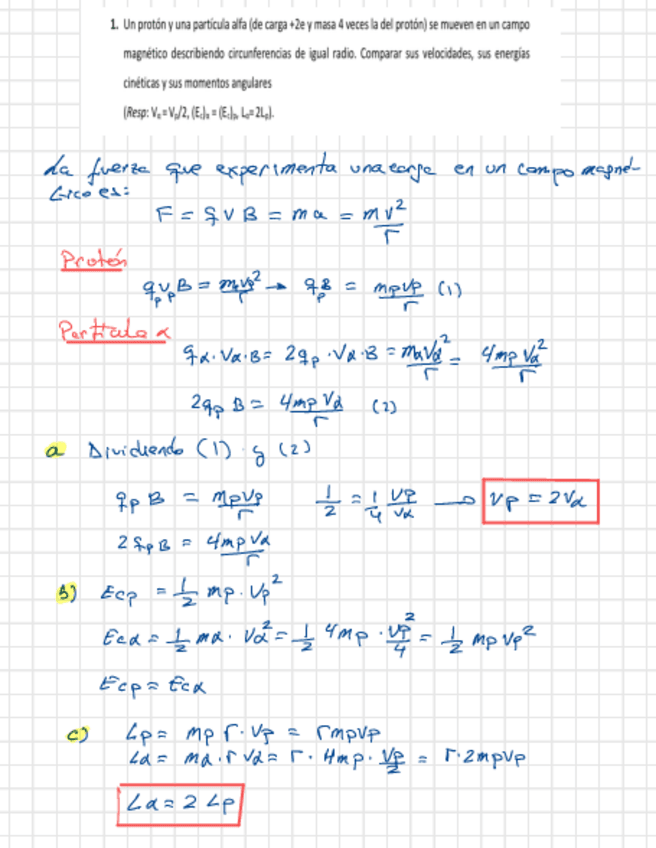 1. Un protón y una partícula alfa (de carga +2e y masa 4 veces la del protón) se mueven en un campo
magnético describiendo circunferencias de igual radio. Comparar sus velocidades, sus energías
cinéticas y sus momentos angulares
(Resp: Vα = Vp/2, (Ec)α = (Ec)p, Lα= 2Lp).
La fuerza que experimenta una carga en un campo magné-
tico es:
F = q v B = m a = m v²/r
Protón
qp vp B = mp vp²/r → qp B = mp vp/r (1)
Partícula α
qα · vα · B = 2qp · vα · B = mα vα²/r = 4mp vα²/r
2qp B = 4mp vα/r (2)
a Dividiendo (1) y (2)
qp B = mp vp/r 1/2 = 1/4 vp/vα → vp = 2vα
2 qp B = 4mp vα/r
b) Ecp = 1/2 mp · vp²
Ecα = 1/2 mα · vα² = 1/2 4mp · vp²/4 = 1/2 mp vp²
Ecp = Ecα
c) Lp = mp r · vp = r mp vp
Lα = mα · r vα = r · 4mp · vp/2 = r · 2mp vp
Lα = 2 Lp